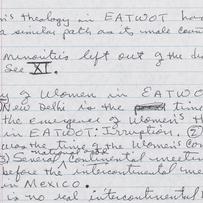 n's theology in EATWOT ha
a similar path as its male coun
minorities left out of the di
See XI.
y of Women in EATWO
New Delhi is the time
the emergence of Women's th
in EATWOT: Irruption. (2)
was the time of the Women's Co
(3) Several national and continental meetin
before the intercontinental me
in Mexico.
is no real intercontinental